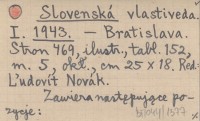 Slovenská vlastiveda.
I. 1943. — Bratislava.
Stron 469, ilustr., tabl. 152,
m. 5, okł., cm 25 x 18. Red.
Ľudovít Novák.
Zawiera następujące po-
zycje: